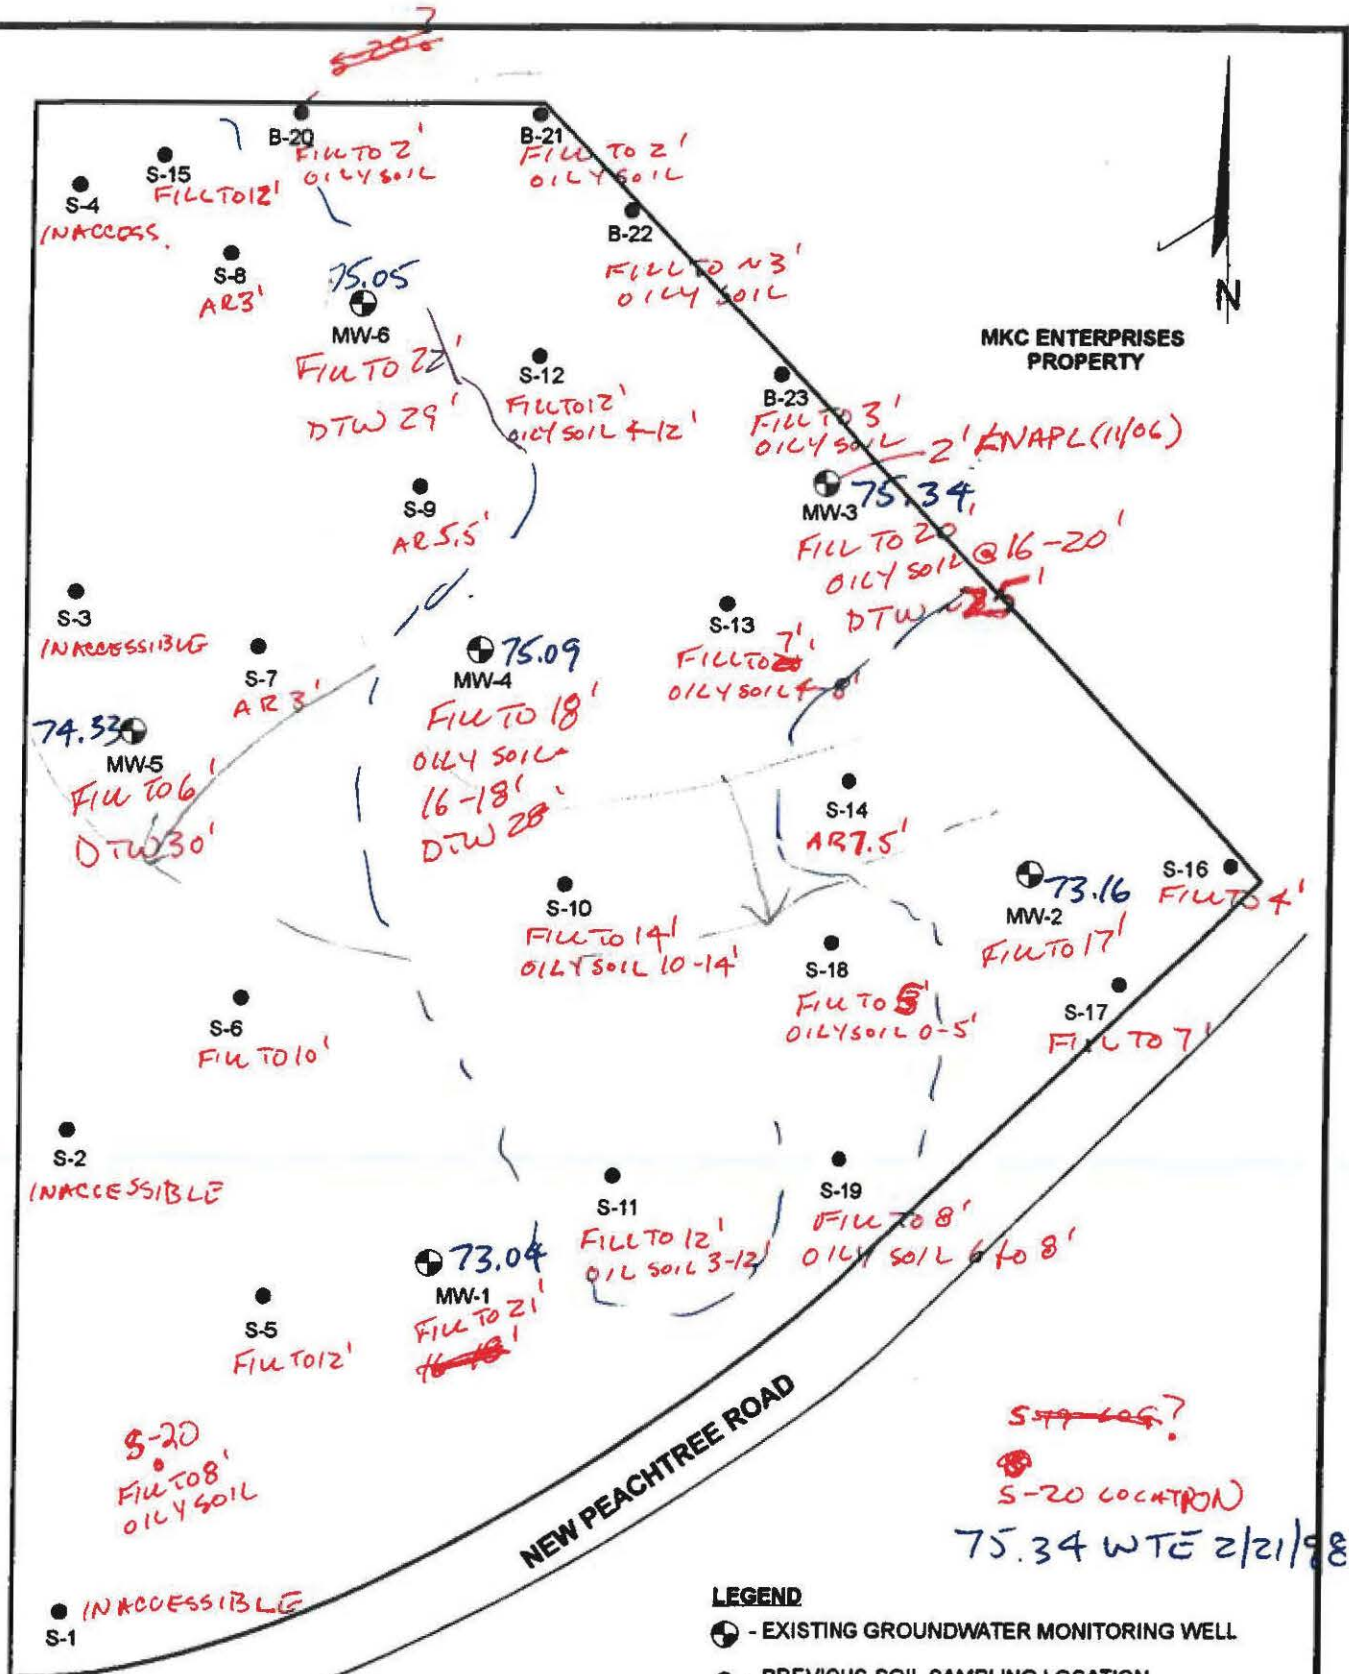 S-20?
B-20
FILL TO 2'
OILY SOIL
B-21
FILL TO 2'
OILY SOIL
S-15
FILL TO 12'
S-4
INACCESS.
B-22
FILL TO ~3'
OILY SOIL
S-8
AR3'
75.05
MW-6
FILL TO 22'
DTW 29'
N
MKC ENTERPRISES
PROPERTY
S-12
FILL TO 12'
OILY SOIL 4-12'
B-23
FILL TO 3'
OILY SOIL
2' LNAPL (11/06)
MW-3
75.34
FILL TO 20'
OILY SOIL @ 16-20'
DTW ~25'
S-9
AR 5.5'
S-3
INACCESSIBLE
S-7
AR 3'
MW-4
75.09
FILL TO 18'
OILY SOIL
16-18'
DTW 28'
S-13
FILL TO 7'
OILY SOIL 4-8'
74.33
MW-5
FILL TO 6'
DTW 30'
S-14
AR7.5'
S-10
FILL TO 14'
OILY SOIL 10-14'
MW-2
73.16
FILL TO 17'
S-16
FILL TO 4'
S-18
FILL TO 5'
OILY SOIL 0-5'
S-17
FILL TO 7'
S-6
FILL TO 10'
S-2
INACCESSIBLE
S-11
FILL TO 12'
OIL SOIL 3-12'
S-19
FILL TO 8'
OILY SOIL 6 to 8'
73.04
MW-1
FILL TO 21'
16-18'
S-5
FILL TO 12'
S-20
FILL TO 8'
OILY SOIL
NEW PEACHTREE ROAD
S-19 LOG?
S-20 LOCATION
75.34 WTE 2/21/98
INACCESSIBLE
S-1
LEGEND
- EXISTING GROUNDWATER MONITORING WELL
- PREVIOUS SOIL SAMPLING LOCATION